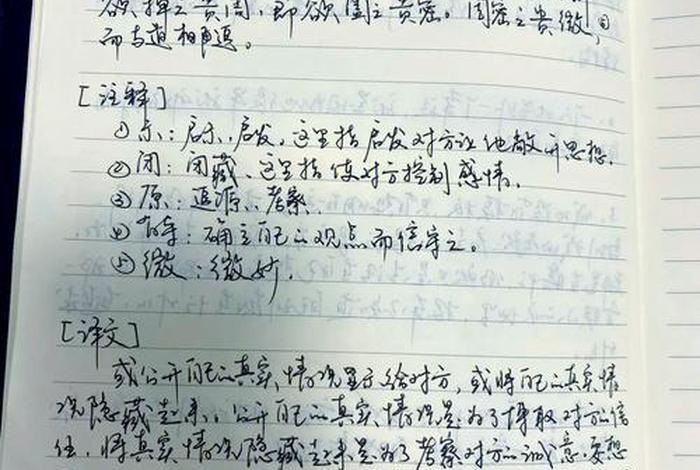 欲捭之贵周，即欲阖之贵密。周密之贵微，
而与道相追。
[注释]
①示：启示、启发，这里指启发对方让他敞开思想。
②闭：闭藏、这里指使对方控制感情。
③原：追源、考察。
④守：确立自己的观点而信守之。
⑤微：微妙。
[译文]
或公开自己的真实情况显示给对方，或将自己的真实情
况隐藏起来。公开自己的真实情况是为了博取对方的信
任，将真实情况隐藏起来是为了考察对方的诚意。要想